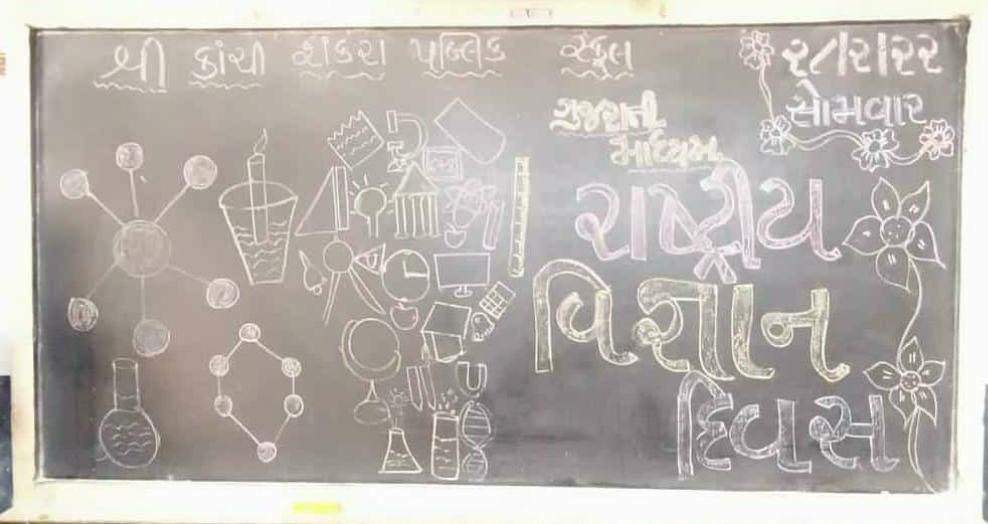 શ્રી કાંચી શંકરા પબ્લિક સ્કુલ
૨૮/૨/૨૨
સોમવાર
ગુજરાતી
માધ્યમ
રાષ્ટ્રીય
વિજ્ઞાન
દિવસ